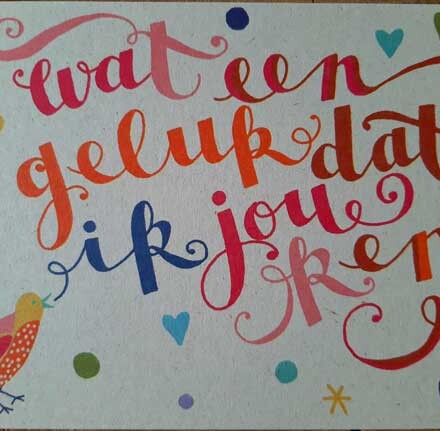 wat een
geluk dat
ik jou
ken